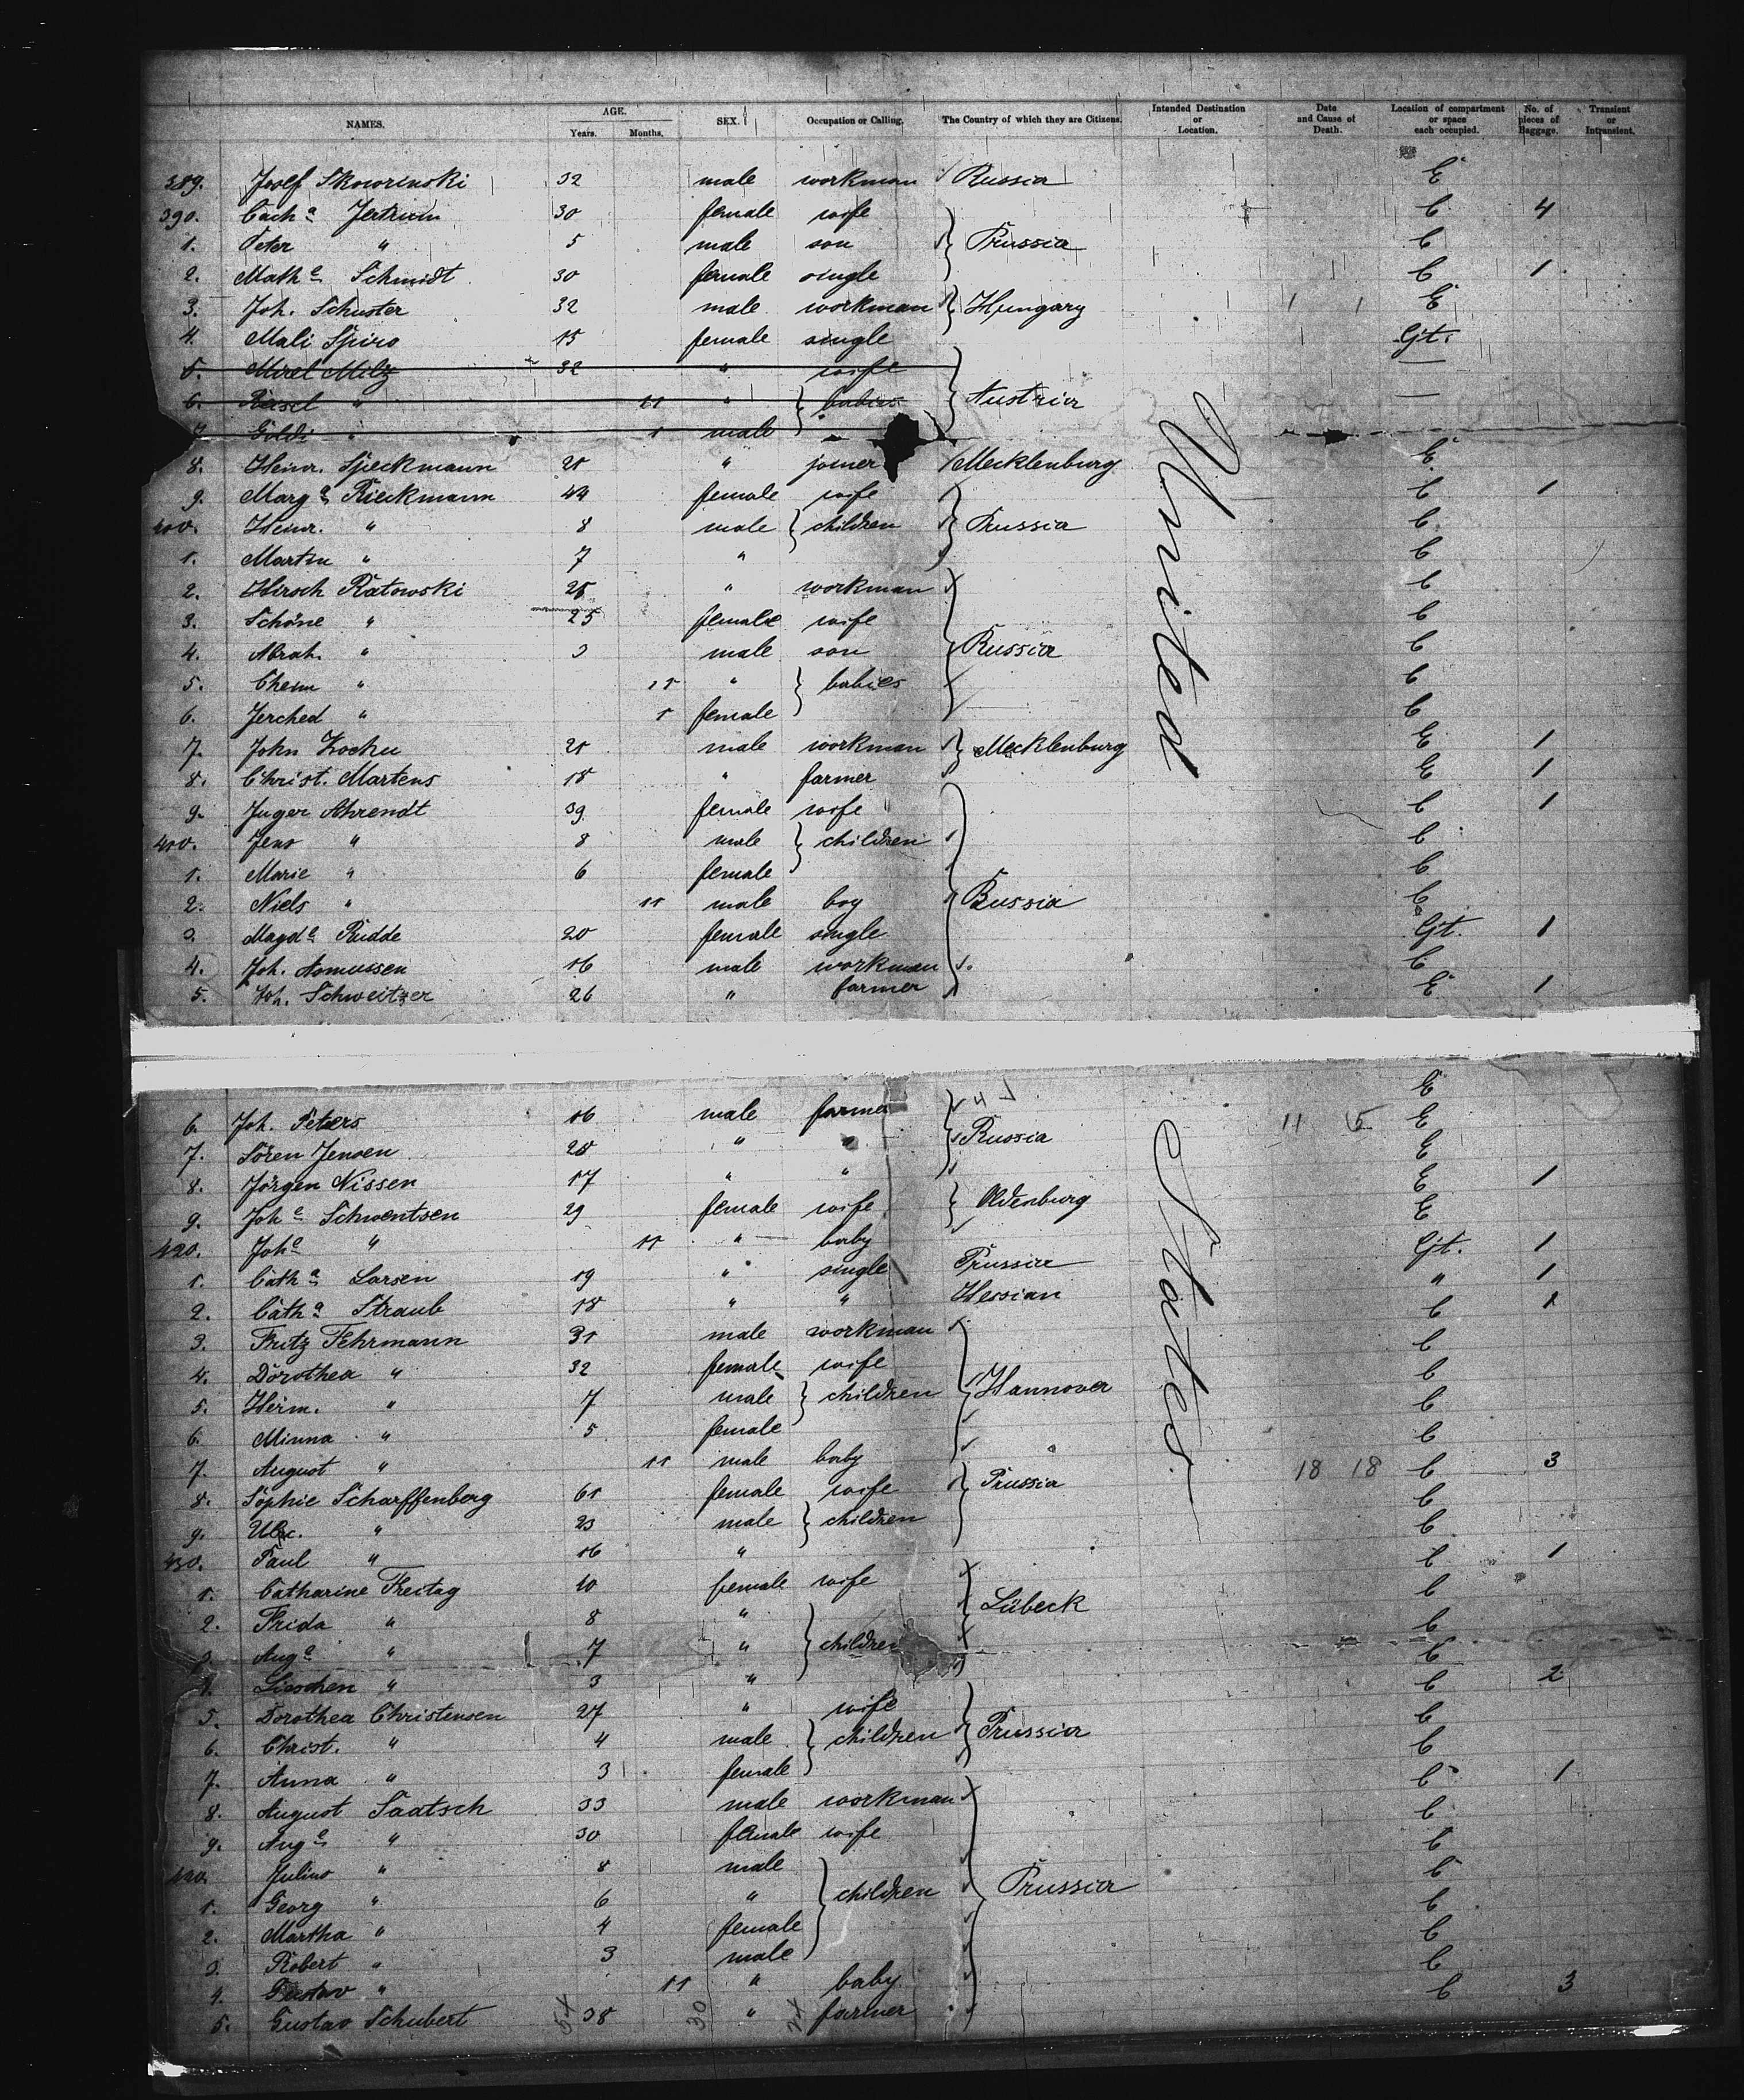 NAMES. AGE. Years. Months. SEX. Occupation or Calling. The Country of which they are Citizens. Intended Destination or Location. Date and Cause of Death. Location of compartment or space each occupied. No. of pieces of Baggage. Transient or Intransient.
389. Josef Skowrinski 32 male workman Russia E
390. Cath.a 30 female wife C. 4
1. Peter " 5 male son Prussia C
2. Math.e Schmidt 30 female single C 1
3. Joh. Schuster 32 male workman Hungary E
4. Mali Spiro 15 female single Gjt.
5. Mirel Milz 32 " wife —
6. Reisel " 11 " babies Austria —
7. Goldi " 1 male "
8. Heinr. Speckmann 21 " joiner Mecklenburg E
9. Marg.a Rieckmann 44 female wife C 1
400. Heinr. " 8 male children Prussia C
1. Martin " 7 " C
2. Hirsch Ratowski 25 " workman C
3. Schöne " 25 female wife C
4. Abrah. " 3 male son Russia C
5. Cheim " 11 " babies C
6. Jerched " 1 female C
7. John 21 male workman Mecklenburg E 1
8. Christ. Martens 18 " farmer E 1
9. Inger Ahrendt 39 female wife C 1
410. Jens " 8 male children C
1. Marie " 6 female C
2. Niels " 11 male boy Prussia C
3. Magd.a Rudde 20 female single Gjt. 1
4. Joh. Asmussen 16 male workman C
5. Joh. Schweitzer 26 " farmer E 1
United
E
6. Joh. Peters 16 male farmer 11 5 E
7. Sören Jensen 28 " " Prussia E
8. Jörgen Nissen 17 " " E 1
9. Joh.e Schwentsen 29 female wife Oldenburg E
420. Joh.a " 11 " baby Gjt. 1
1. Cath.a Larsen 19 " single Prussia " 1
2. Cath.a Straub 18 " " Hessian C 1
3. Fritz Fehrmann 31 male workman C
4. Dorothea " 32 female wife C
5. Herm. " 7 male children Hannover C
6. Minna " 5 female C
7. August " 11 male baby 18 18 C 3
8. Sophie Scharffenberg 61 female wife Prussia C
9. " 23 male children C
430. Paul " 16 " C 1
1. Catharine Freitag 40 female wife C
2. Frida " 8 " Lübeck C
3. Aug.a " 7 " children C
4. Lieschen " 3 " C 2
5. Dorothea Christensen 27 " wife C
6. Christ. " 4 male children Prussia C
7. Anna " 3 female C 1
8. August Saatsch 33 male workman C
9. Aug.e " 30 female wife C
440. Julius " 8 male C
1. Georg " 6 " children Prussia C
2. Martha " 4 female C
3. Robert " 3 male C
4. Gustav " 11 " baby C 3
5. Gustav Schubert 38 " farmer
States
54 30 24